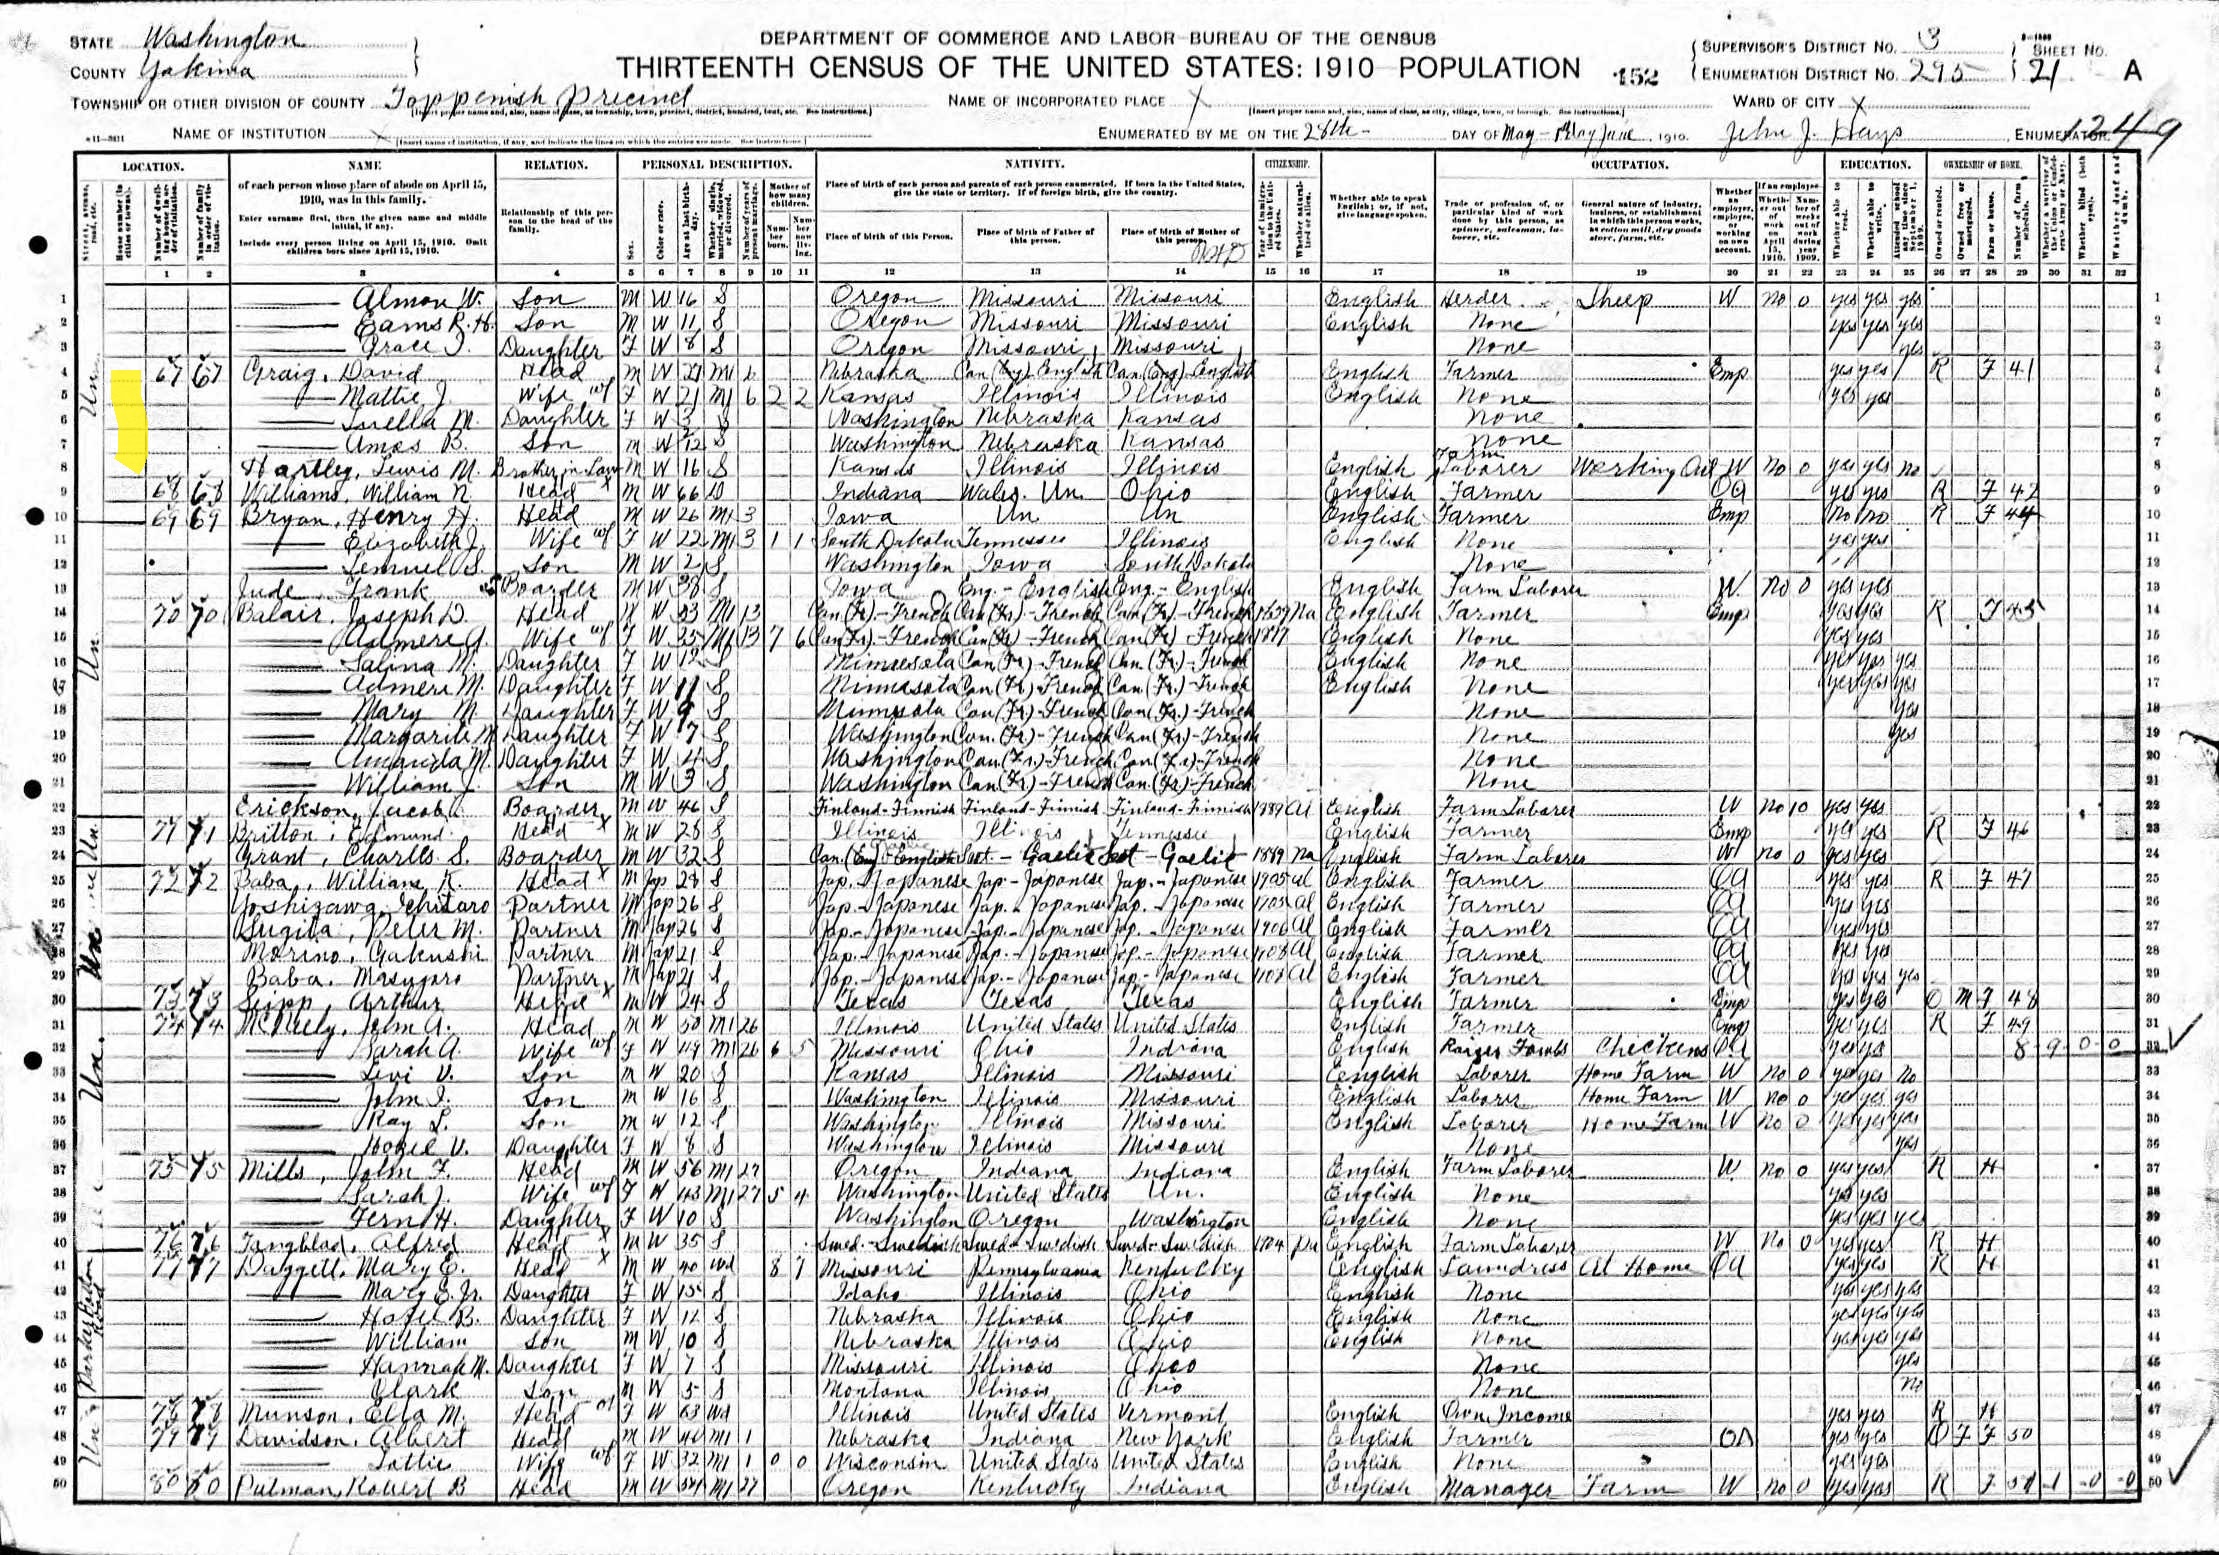 STATE Washington
COUNTY Yakima
DEPARTMENT OF COMMERCE AND LABOR-BUREAU OF THE CENSUS
THIRTEENTH CENSUS OF THE UNITED STATES: 1910 POPULATION
152
SUPERVISOR'S DISTRICT NO. 3
ENUMERATION DISTRICT NO. 295
SHEET NO. 21 A
TOWNSHIP OR OTHER DIVISION OF COUNTY Toppenish Precinct
NAME OF INCORPORATED PLACE X
WARD OF CITY X
NAME OF INSTITUTION X
ENUMERATED BY ME ON THE 28th DAY OF May 1910. John J. Hays ENUMERATOR
1249
LOCATION. NAME RELATION. PERSONAL DESCRIPTION. NATIVITY. CITIZENSHIP. OCCUPATION. EDUCATION. OWNERSHIP OF HOME.
of each person whose place of abode on April 15, 1910, was in this family.
Enter surname first, then the given name and middle initial, if any.
Include every person living on April 15, 1910. Omit children born since April 15, 1910.
Relationship of this person to the head of the family.
Place of birth of each person and parents of each person enumerated. If born in the United States, give the state or territory. If of foreign birth, give the country.
Place of birth of this Person. Place of birth of Father of this person. Place of birth of Mother of this person.
Whether able to speak English; or, if not, give language spoken.
Trade or profession of, or particular kind of work done by this person, as spinner, salesman, laborer, etc.
General nature of industry, business, or establishment in which this person works, as cotton mill, dry goods store, farm, etc.
1 2 3 4 5 6 7 8 9 10 11 12 13 14 15 16 17 18 19 20 21 22 23 24 25 26 27 28 29 30 31 32
1 Almon W. Son M W 16 S Oregon Missouri Missouri English Herder Sheep W no 0 yes yes yes
2 R. H. Son M W 11 S Oregon Missouri Missouri English None yes yes yes
3 Grace I. Daughter F W 8 S Oregon Missouri Missouri None yes
4 67 67 Craig, David Head M W 27 M1 6 Nebraska Can (Eng) English Can (Eng) English English Farmer Emp yes yes R F 41
5 Mattie J. Wife F W 21 M1 6 2 2 Kansas Illinois Illinois English None yes yes
6 Luella M. Daughter F W 3 S Washington Nebraska Kansas None
7 Amos B. Son M W S Washington Nebraska Kansas None
8 Hartley, Lewis M. Brother in Law M W 16 S Kansas Illinois Illinois English Farm Laborer Working Out W no 0 yes yes no
9 68 68 Williams, William R. Head M W 66 D Indiana Wales. Un. Ohio English Farmer OA yes yes R F 42
10 69 69 Bryan, Henry H. Head M W 26 M1 3 Iowa Un Un English Farmer Emp no no R F 44
11 Elizabeth J. Wife F W 22 M1 3 1 1 South Dakota Tennessee Illinois English None yes yes
12 Lemuel S. Son M W 2 S Washington Iowa South Dakota None
13 Jude, Frank Boarder M W 38 S Iowa Eng.-English Eng.-English English Farm Laborer W no 0 yes yes
14 70 70 Balair, Joseph D. Head W 53 M1 13 Can (Fr).-French Can (Fr)-French Can (Fr)-French Na English Farmer Emp yes yes R F 45
15 Wife F W 35 M1 13 7 6 Can (Fr)-French Can (Fr)-French Can (Fr)-French English None yes yes
16 Salina M. Daughter F W 12 S Minnesota Can (Fr.)-French Can (Fr.)-French English None yes yes yes
17 M. Daughter F W 11 S Minnesota Can (Fr.)-French Can (Fr.)-French English None yes yes yes
18 Mary M. Daughter F W 9 S Minnesota Can (Fr)-French Can (Fr.)-French None yes
19 Margarite M. Daughter F W 7 S Washington Can. (Fr)-French Can (Fr)-French None yes
20 Amanda M. Daughter F W 4 S Washington Can (Fr.)-French Can (Fr)-French None
21 William J. Son M W 3 S Washington Can (Fr.)-French Can (Fr)-French None
22 Erickson, Jacob Boarder M W 46 S Finland-Finnish Finland-Finnish Finland-Finnish 1889 Al English Farm Laborer W no 10 yes yes
23 71 71 Britton, Edmund Head M W 28 S Illinois Illinois Tennessee English Farmer Emp yes yes R F 46
24 Grant, Charles S. Boarder M W 32 S Can. (Eng)-English Scot.-Gaelic Scot-Gaelic 1889 Na English Farm Laborer W no 0 yes yes
25 72 72 Baba, William K. Head M Jap 28 S Jap.-Japanese Jap-Japanese Jap.-Japanese 1905 Al English Farmer OA yes yes R F 47
26 Yoshizawa, Partner M Jap 26 S Jap-Japanese Jap.-Japanese Jap.-Japanese Al English Farmer OA yes yes
27 Sugita, Peter M. Partner M Jap 26 S Jap-Japanese Jap.-Japanese Jap.-Japanese 1906 Al English Farmer OA yes yes
28 Morino, Partner M Jap 21 S Jap.-Japanese Jap.-Japanese Jap.-Japanese Al English Farmer OA yes yes
29 Baba, Partner M Jap 21 S Jap.-Japanese Jap.-Japanese Jap-Japanese Al English Farmer OA yes yes yes
30 73 73 Seipp, Arthur Head M W 24 S Texas Texas Texas English Farmer Emp yes yes O M F 48
31 74 74 McNeely, John A. Head M W 50 M1 26 Illinois United States United States English Farmer Emp yes yes R F 49
32 Sarah A. Wife F W 49 M1 26 6 5 Missouri Ohio Indiana English Raises Fowls Chickens OA yes yes 8-9-0-0
33 Levi V. Son M W 20 S Kansas Illinois Missouri English Laborer Home Farm W no 0 yes yes no
34 John I. Son M W 16 S Washington Illinois Missouri English Laborer Home Farm W no 0 yes yes yes
35 Ray L. Son M W 12 S Washington Illinois Missouri English Laborer Home Farm W no 0 yes yes yes
36 V. Daughter F W 8 S Washington Illinois Missouri None yes
37 75 75 Mills, John F. Head M W 56 M1 27 Oregon Indiana Indiana English Farm Laborer W. no 0 yes yes R H
38 Sarah J. Wife F W 43 M1 27 5 4 Washington United States Un. English None yes yes
39 Fern H. Daughter F W 10 S Washington Oregon Washington English None yes yes yes
40 76 76 Tangblad, Alfred Head M W 35 S Swed.-Swedish Swed-Swedish Swed-Swedish 1904 Pa English Farm Laborer W no 0 yes yes R H
41 77 77 Duggett, Mary E. Head M W 40 Wd 8 7 Missouri Pennsylvania Kentucky English Laundress At Home OA yes yes R H
42 Mary E. Jr. Daughter F W 15 S Idaho Illinois Ohio English None yes yes yes
43 B. Daughter F W 12 S Nebraska Illinois Ohio English None yes yes yes
44 William Son M W 10 S Nebraska Illinois Ohio English None yes yes yes
45 Hannah M. Daughter F W 7 S Missouri Illinois Ohio None yes
46 Clark Son M W 5 S Montana Illinois Ohio None no
47 78 78 Munson, Ella M. Head F W 63 Wd Illinois United States Vermont English Own Income yes yes R H
48 79 79 Davidson, Albert Head M W M1 1 Nebraska Indiana New York English Farmer OA yes yes O F F 50
49 Lottie Wife F W 32 M1 1 0 0 Wisconsin United States United States English None yes yes
50 80 80 Pulman, Robert B Head M W 54 M1 27 Oregon Kentucky Indiana English Manager Farm W no 0 yes yes R F 51-1-0-0